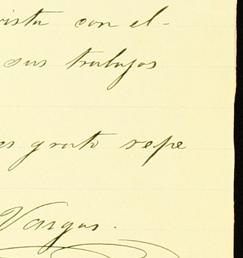 vista con el-
sus trabajos
es grato repe
Vargas.